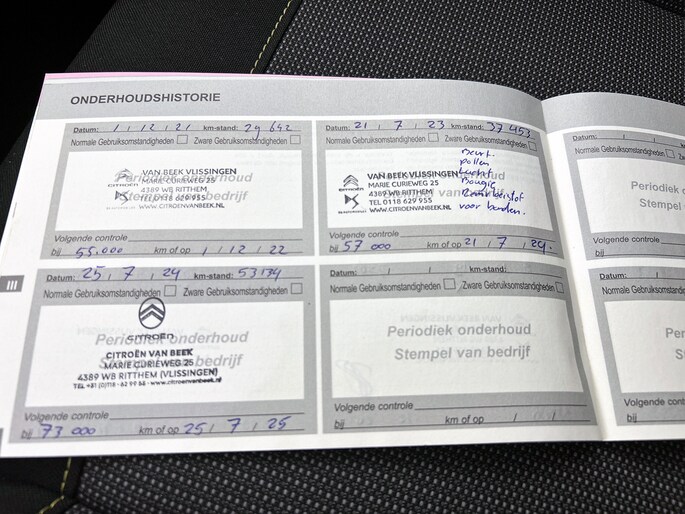 ONDERHOUDSHISTORIE
Datum: 1 / 12 / 21 km-stand: 29 642
Normale Gebruiksomstandigheden Zware Gebruiksomstandigheden
Periodiek onderhoud
Stempel van bedrijf
CITROËN
DS
VAN BEEK VLISSINGEN
MARIE CURIEWEG 25
4389 WB RITTHEM
TEL 0118 629 955
WWW.CITROENVANBEEK.NL
Volgende controle
bij 55.000 km of op 1 / 12 / 22
Datum: 21 / 7 / 23 km-stand: 37 453
Normale Gebruiksomstandigheden Zware Gebruiksomstandigheden
Beurt.
pollen
Lucht
Bougie
Remvloeistof
voor banden.
CITROËN
VAN BEEK VLISSINGEN
MARIE CURIEWEG 25
4389 WB RITTHEM
TEL 0118 629 955
WWW.CITROENVANBEEK.NL
Volgende controle
bij 57 000 km of op 21 / 7 / 24.
Datum: 25 / 7 / 24 km-stand: 53134
Normale Gebruiksomstandigheden Zware Gebruiksomstandigheden
Periodiek onderhoud
Stempel van bedrijf
CITROËN
CITROËN VAN BEEK
MARIE CURIEWEG 25
4389 WB RITTHEM (VLISSINGEN)
TEL +31 (0)118 - 62 99 55 - www.citroenvanbeek.nl
Volgende controle
bij 73 000 km of op 25 / 7 / 25
Datum: / / km-stand:
Normale Gebruiksomstandigheden Zware Gebruiksomstandigheden
Periodiek onderhoud
Stempel van bedrijf
Volgende controle
bij km of op / /
Datum: / /
Normale Gebruiksomstandigheden
Periodiek
Stempel
Volgende controle
bij
Datum:
Normale Gebruiksomstandigheden
Periodiek
Stempel
Volgende controle
bij
III